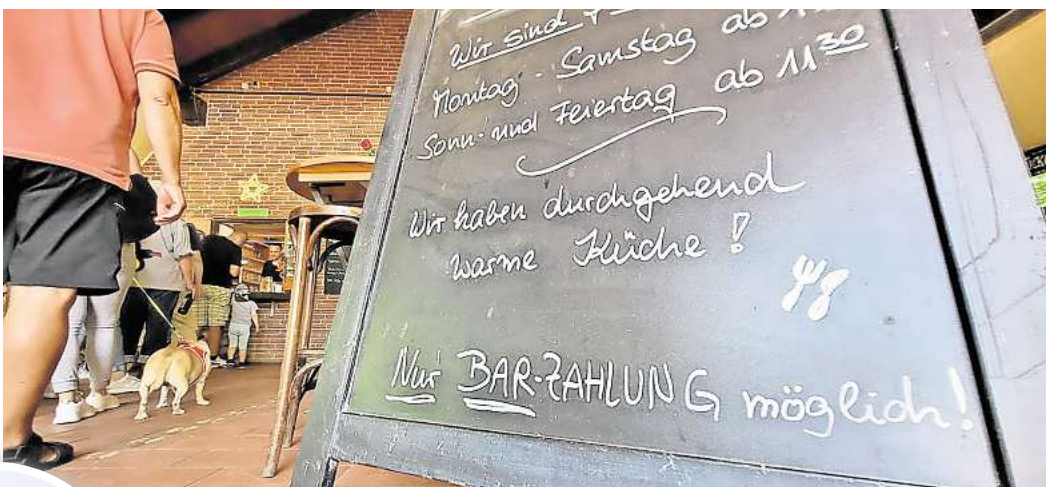 Wir sind
Montag - Samstag ab
Sonn- und Feiertag ab 11 30
Wir haben durchgehend
warme Küche!
Nur BAR-ZAHLUNG möglich!